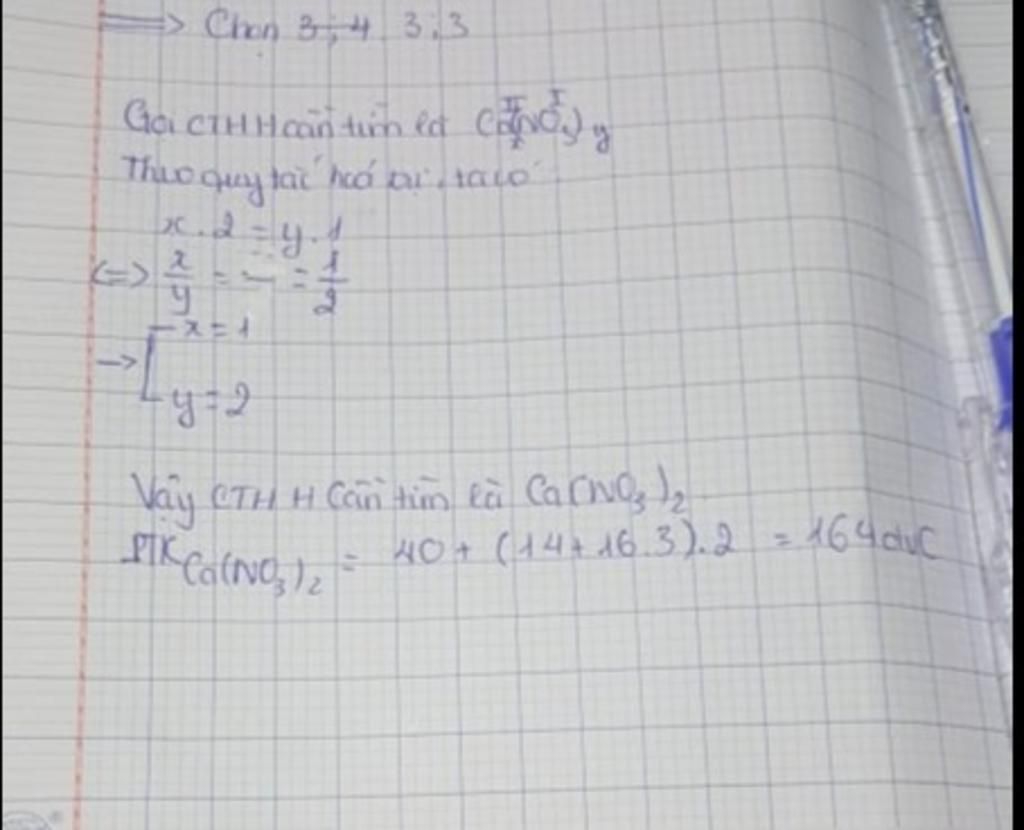 => Chọn 3;4 3;3
Gọi CTHH cần tìm là Caₓ(NO₃)y
II I
Theo quy tắc hoá trị, ta có
x.2 = y.1
<=> x/y = – = 1/2
-> [ x = 1
y = 2
Vậy CTHH cần tìm là Ca(NO₃)₂
PTK Ca(NO₃)₂ = 40 + (14+16.3).2 = 164 đvC